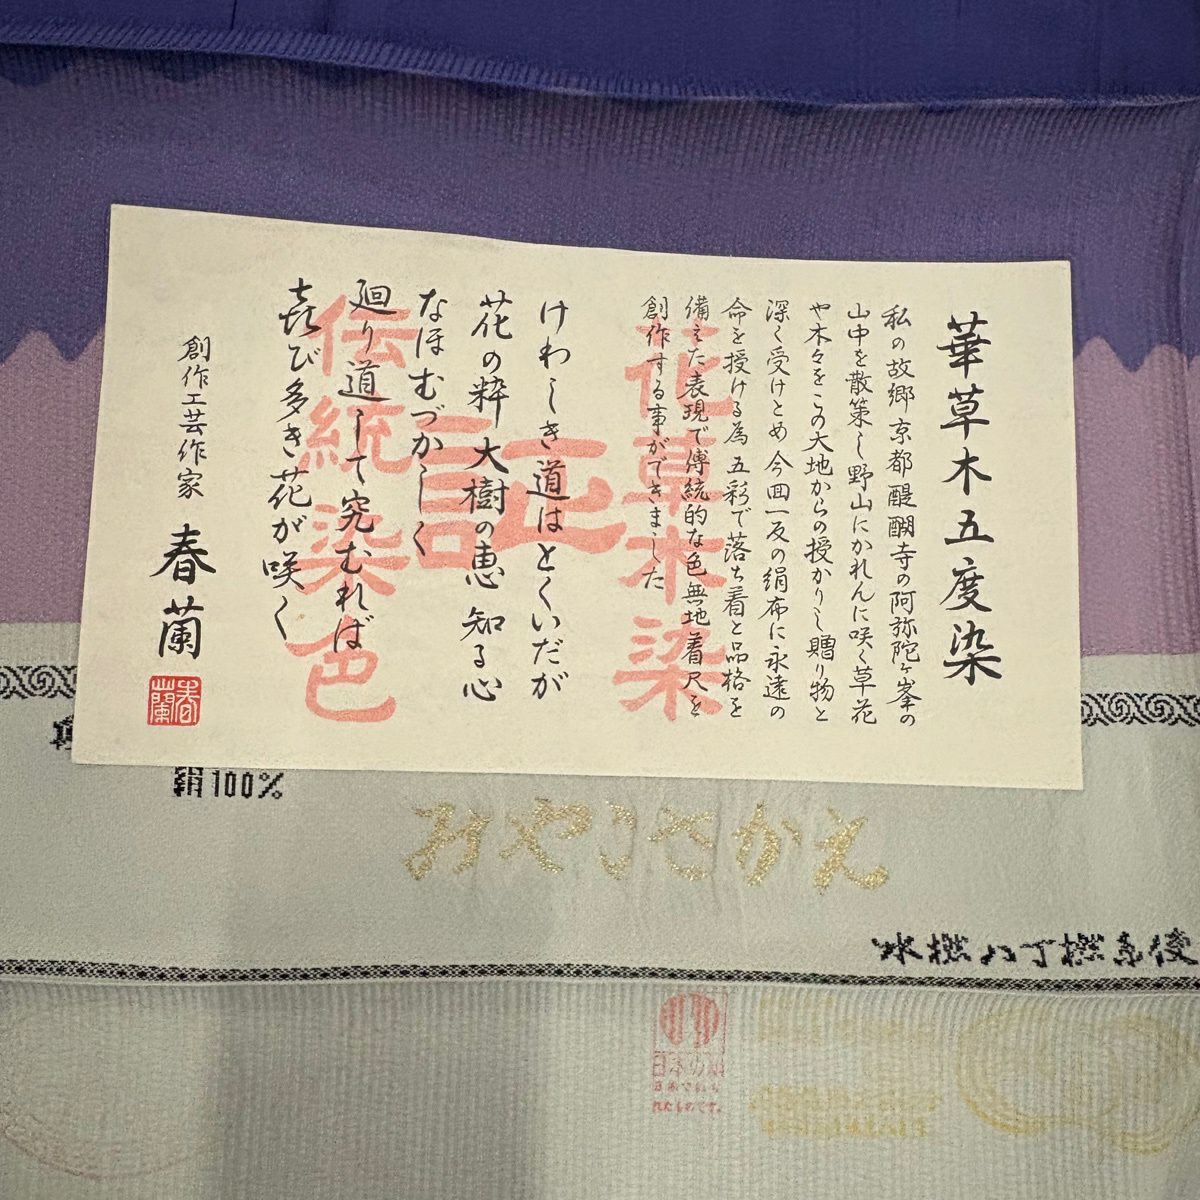 華草木五度染
私の故郷京都醍醐寺の阿弥陀ヶ峯の
山中を散策し野山にかれんに咲く草花
や木々をこの大地からの授かりし贈り物と
深く受けとめ今回一反の絹布に永遠の
命を授ける為五彩で落ち着と品格を
備えた表現で傳統的な色無地着尺を
創作する事ができました
花草木染
証
伝統染色
けわしき道はとくいだが
花の粋大樹の恵知る心
なほむづかしく
廻り道して究むれば
㐂び多き花が咲く
創作工芸作家 春蘭
春蘭
絹100%
みやこさかえ
水撚八丁撚糸使
日本の絹